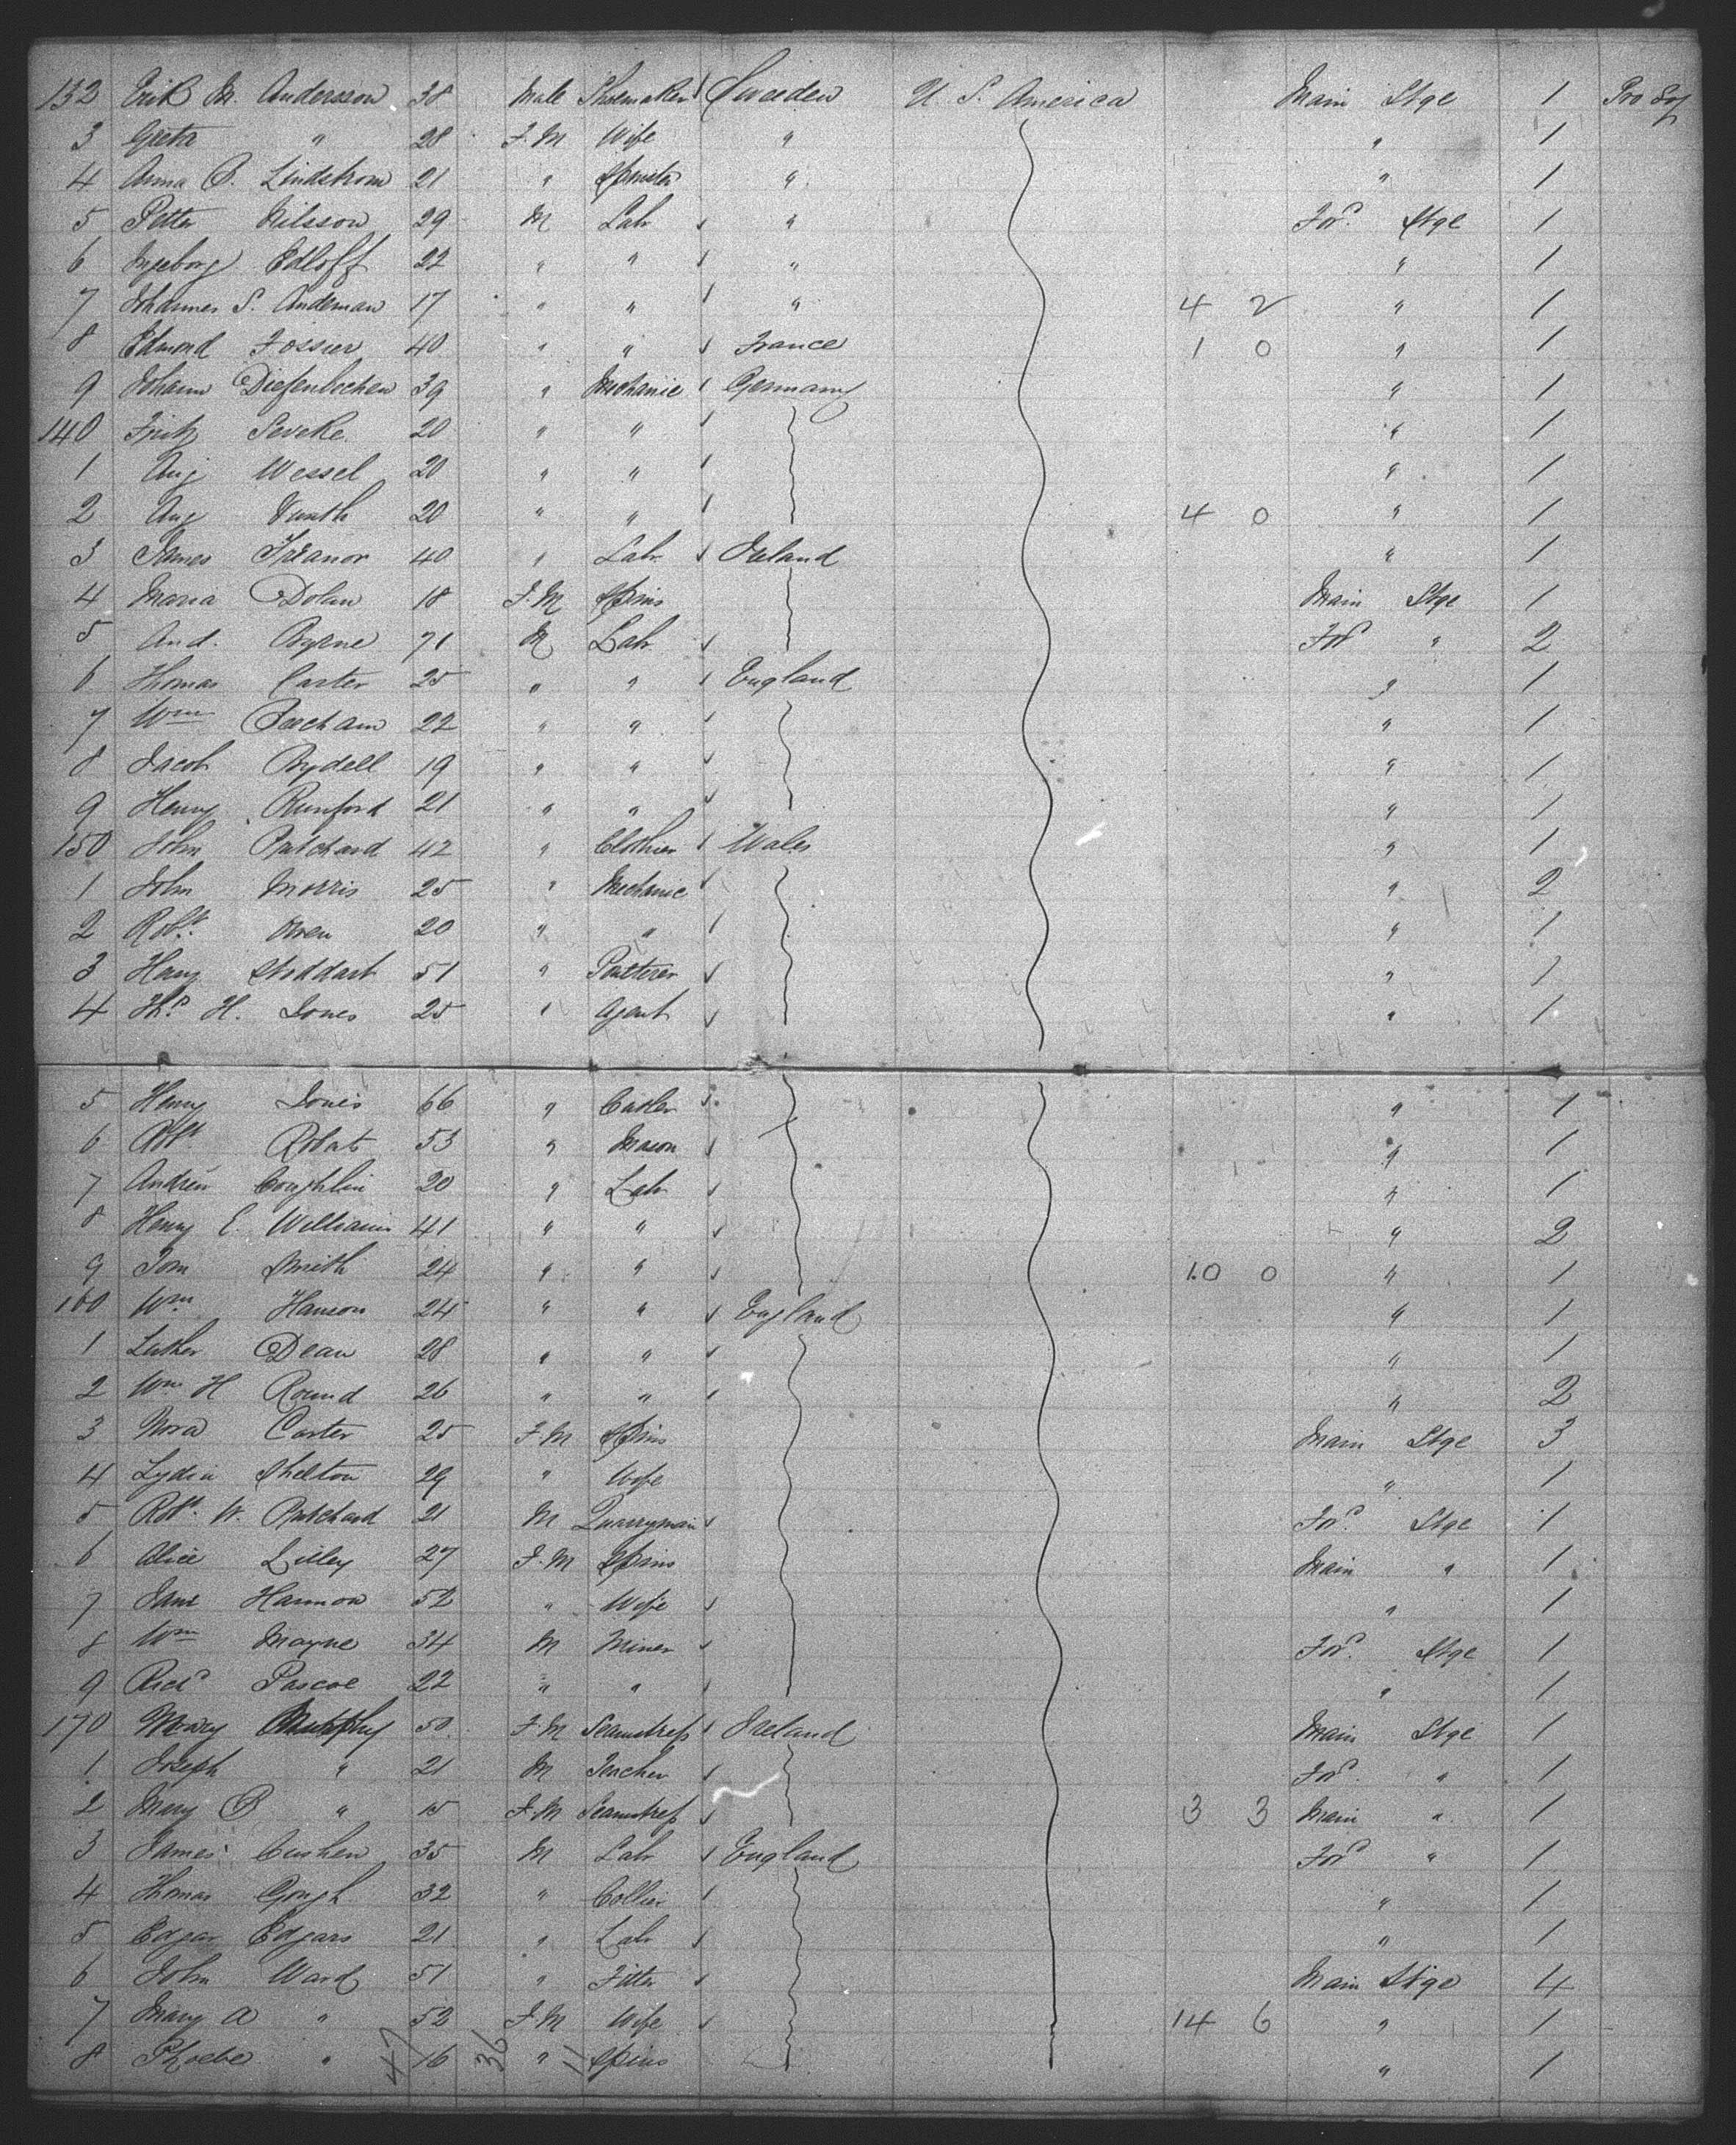 132 Erik M. Andersson 38 Male Shoemaker Sweeden U. S. America Main Stge 1 Pro Soj
3 Greta " 28 F.M Wife " " 1
4 Anna B. Lindstrom 21 " Spinster " " 1
5 Petter Nilsson 29 M Labr " For.d Stge 1
6 Ingeborg Edloff 22 " " " " 1
7 Johannes S. Andeman 17 " " " 4 2 " 1
8 Edmond Fossier 40 " " France 1 0 " 1
9 Johann Diefenbochen 39 " Mechanic Germany " 1
140 Fritz Seveke 20 " " " 1
1 Aug Wessel 20 " " " 1
2 Aug 20 " " 4 0 " 1
3 James Treanor 40 " Labr Ireland " 1
4 Maria Dolan 18 F.M Spins Main Stge 1
5 And. Byrne 71 M Labr For.d " 2
6 Thomas Carter 25 " " England " 1
7 Wm Beecham 22 " " " 1
8 Jacob Bydell 19 " " " 1
9 Henry Runford 21 " " " 1
150 John Pritchard 42 " Clothier Wales " 1
1 John Morris 25 " Mechanic " 2
2 Robt. Owen 20 " " " 1
3 Harry Stoddart 51 " " 1
4 Ths. H. Jones 25 " Agent " 1
5 Henry Jones 66 " " 1
6 Robt Robats 53 " Mason " 1
7 Andrew Coughlin 20 " Labr " 1
8 Henry E. Williams 41 " " " 2
9 Tom Smith 24 " " 10 0 " 1
160 Wm Hanson 24 " " England " 1
1 Luther Dean 28 " " " 1
2 Wm H Round 26 " " " 2
3 Nora Carter 25 F.M Spins Main Stge 3
4 Lydia Shelton 29 " Wife " 1
5 Robt. W. Pritchard 21 M Quarryman For.d Stge 1
6 Alice Lilley 27 F.M Spins Main " 1
7 Jane Hannon 52 " Wife " 1
8 Wm Mayne 34 M Miner For.d Stge 1
9 Richd Pascoe 22 " " " 1
170 Mary Murphy 50 F.M Seamstress Ireland Main Stge 1
1 Joseph " 21 M Teacher For.d " 1
2 Mary B " 15 F.M Seamstress 3 3 Main " 1
3 James Cushen 35 M Labr England For.d " 1
4 Thomas Gough 32 " Collier " 1
5 Edgar Edgars 21 " Labr " 1
6 John Ward 51 " Fitter Main Stge 4
7 Mary A " 52 F.M Wife 14 6 " 1
8 Phoebe " 16 " Spins " 1
47 36 11